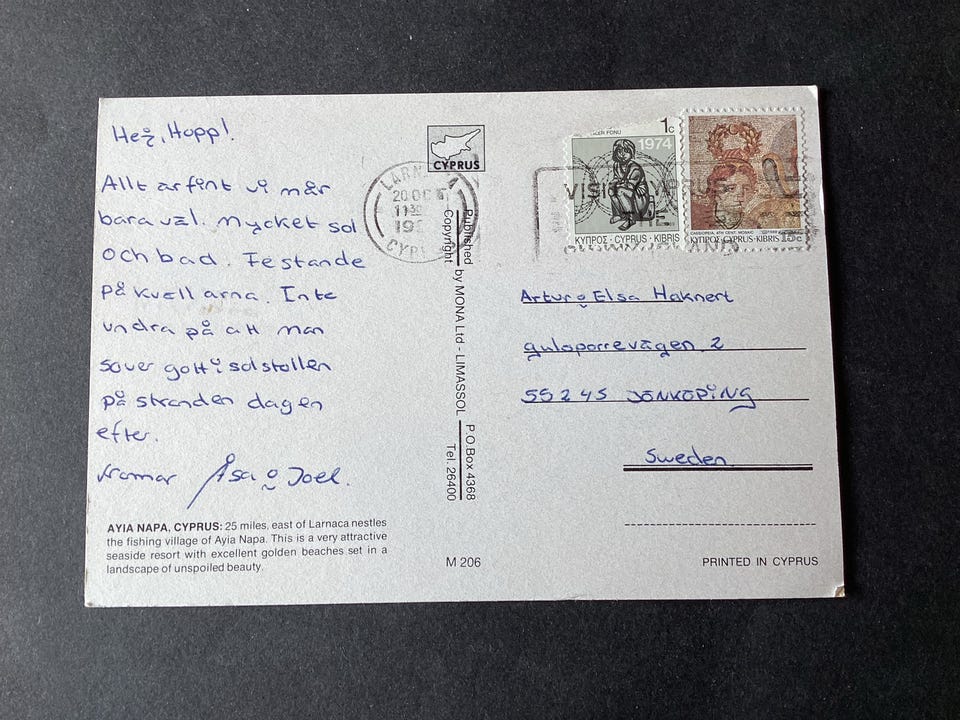 Hej, Hopp!
Allt är fint vi mår
bara väl. Mycket sol
och bad. Festande
på kvällarna. Inte
undra på att man
sover gott i solstolen
på stranden dagen
efter.
Kramar Åsa o Joel.
AYIA NAPA, CYPRUS: 25 miles, east of Larnaca nestles
the fishing village of Ayia Napa. This is a very attractive
seaside resort with excellent golden beaches set in a
landscape of unspoiled beauty.
CYPRUS
Published by MONA Ltd - LIMASSOL P.O.Box 4368
Copyright Tel. 26400
M 206
LARNACA
20 OC
11 30
19
CYPR
VISIT CYPRUS
THE
1c
1974
ΚΥΠΡΟΣ · CYPRUS · KIBRIS
CASSIOPEIA, 4TH CENT. MOSAIC
ΚΥΠΡΟΣ · CYPRUS · KIBRIS 15c
Artur o Elsa Haknert
55245 JÖNKÖPING
Sweden
PRINTED IN CYPRUS